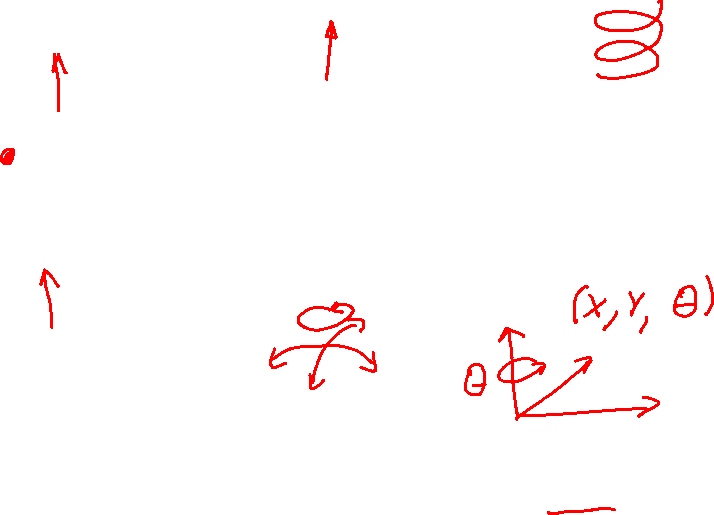 (x, y, θ)
θ